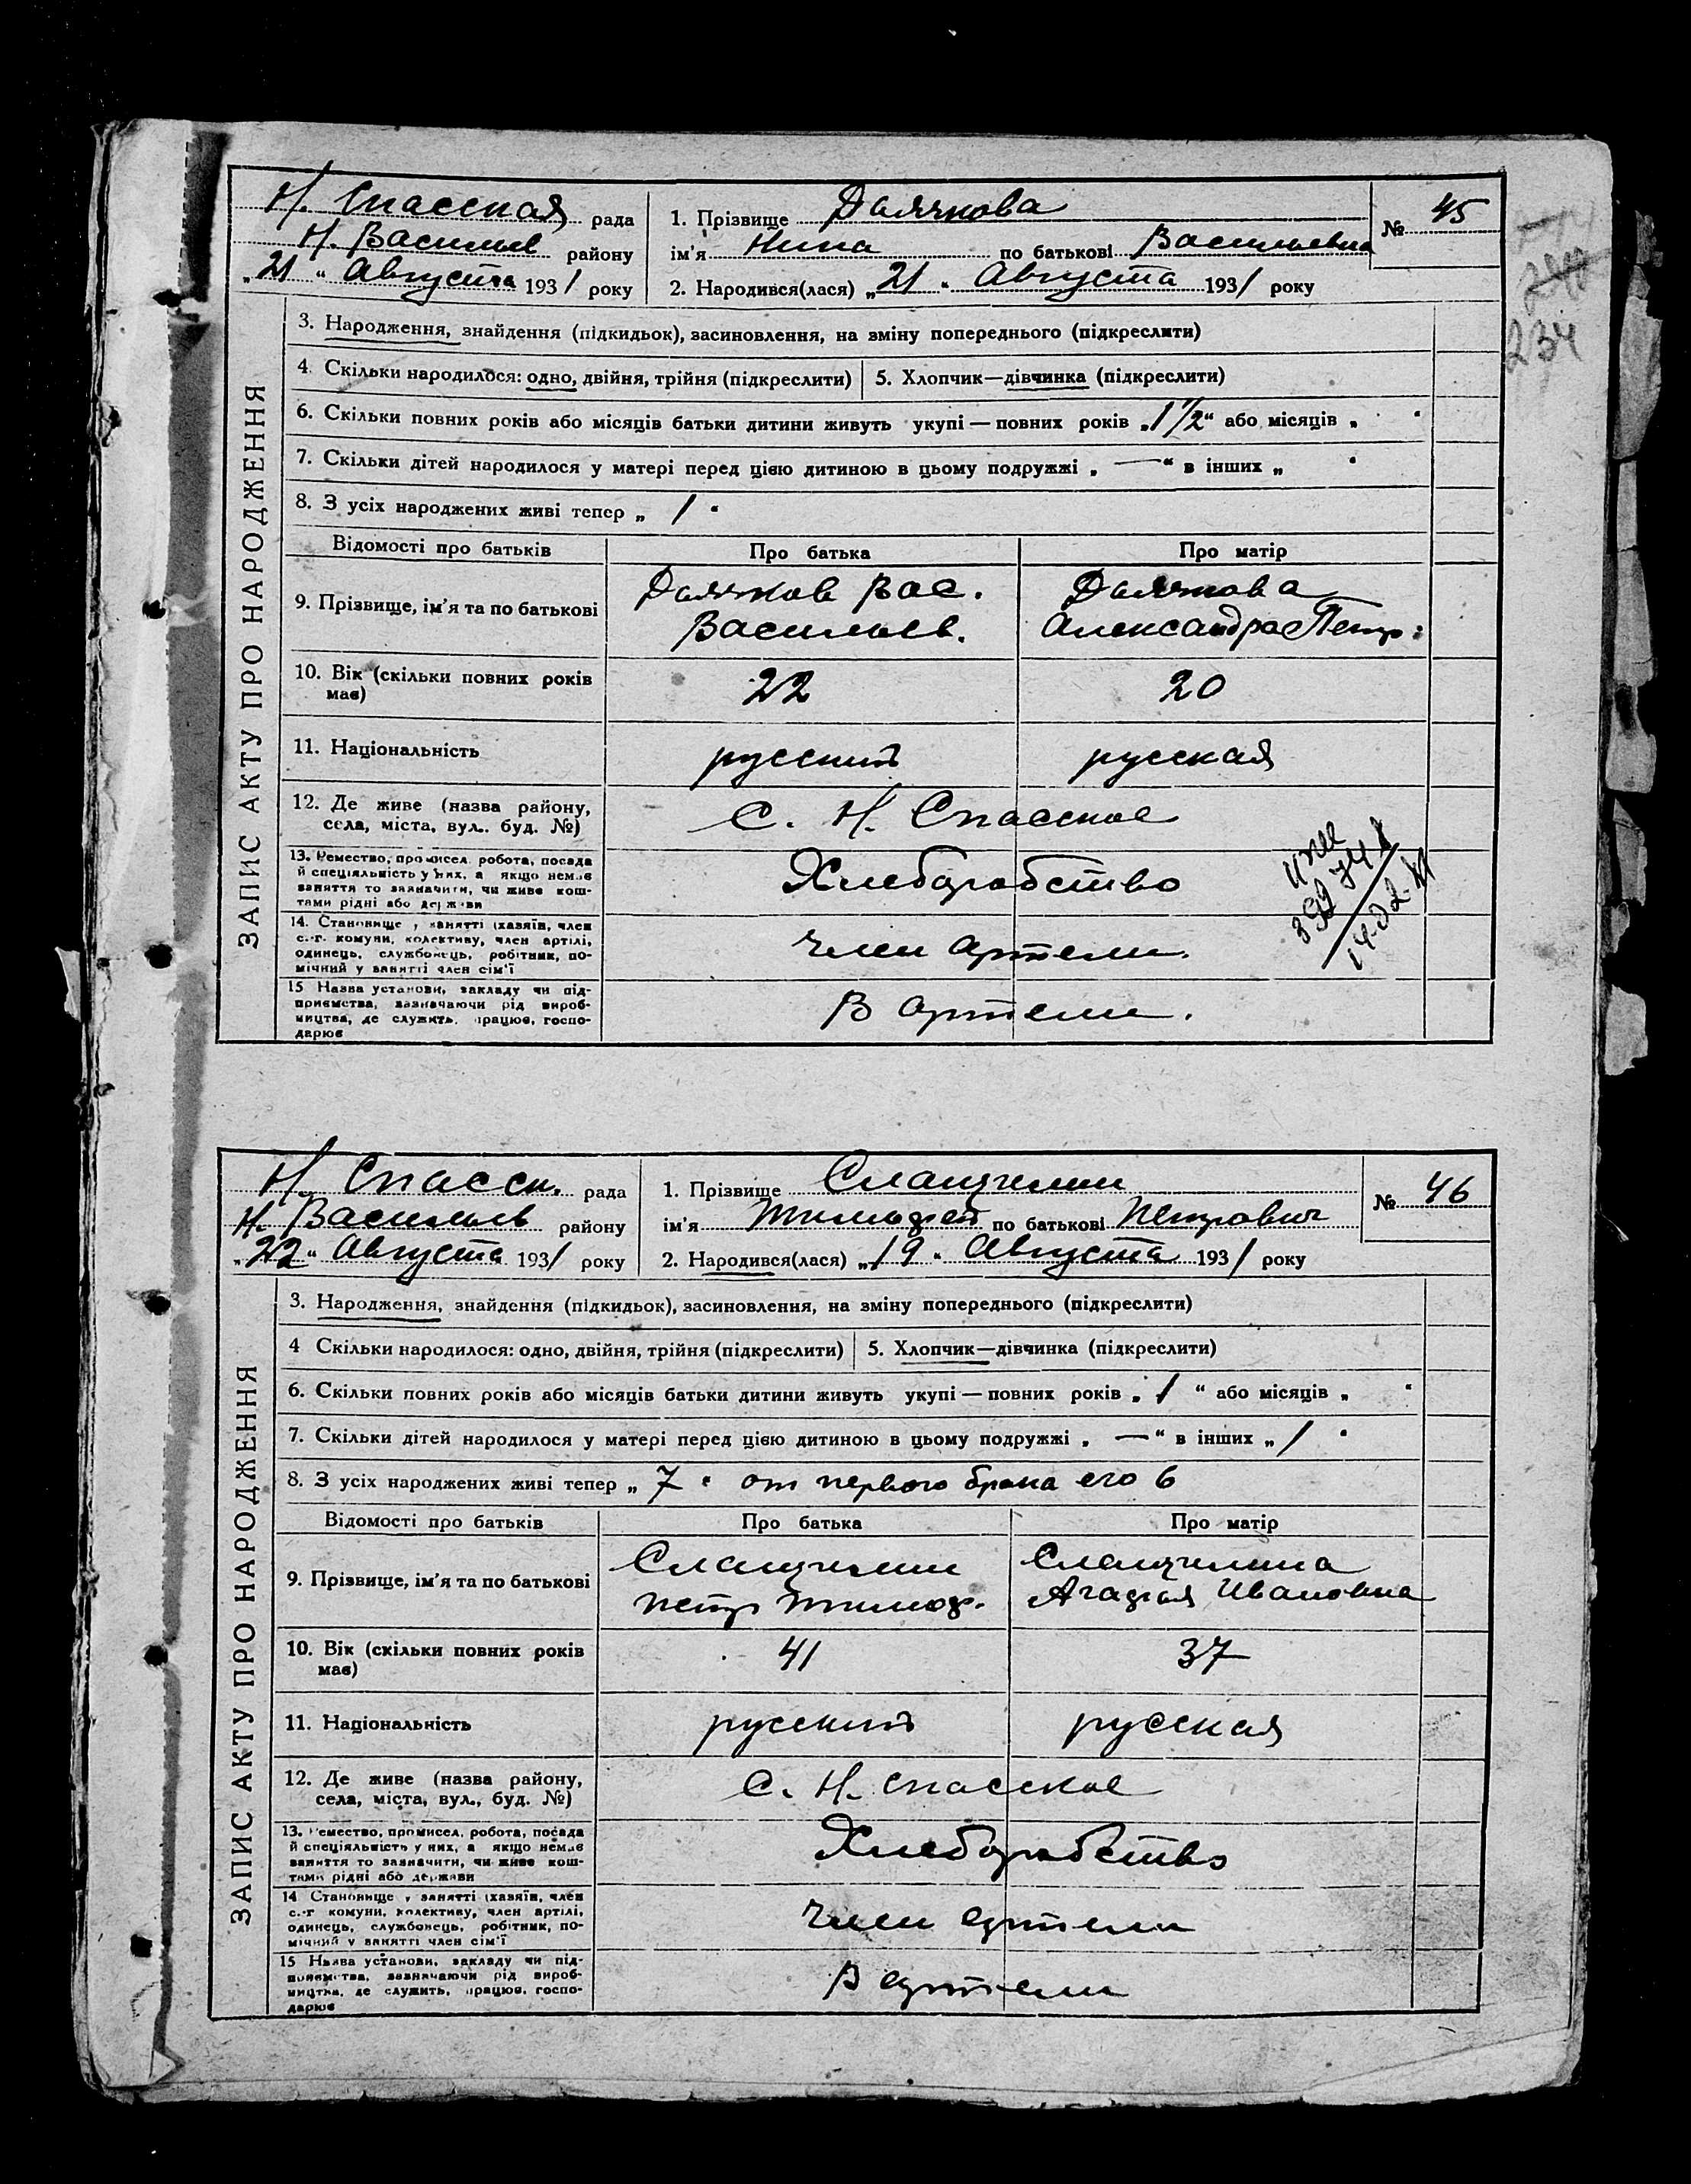 Н. Спасская рада
Н. Васильев району
„21“ Августа 1931 року
1. Прізвище
ім'я Нина по батькові Васильевна
2. Народився(лася) „21“ Августа 1931 року
№ 45
234
ЗАПИС АКТУ ПРО НАРОДЖЕННЯ
3. Народження, знайдення (підкидьок), засиновлення, на зміну попереднього (підкреслити)
4. Скільки народилося: одно, двійня, трійня (підкреслити)
5. Хлопчик—дівчинка (підкреслити)
6. Скільки повних років або місяців батьки дитини живуть укупі — повних років „1 1/2“ або місяців „ “
7. Скільки дітей народилося у матері перед цією дитиною в цьому подружжі „ — “ в інших „ “
8. З усіх народжених живі тепер „ 1 “
Відомості про батьків
Про батька
Про матір
9. Прізвище, ім'я та по батькові
Вас.
Васильев.
Александра Петр.
10. Вік (скільки повних років
має)
22
20
11. Національність
русский
русская
12. Де живе (назва району,
села, міста, вул., буд. №)
С. Н. Спасское
13. Ремество, промисел, робота, посада
й спеціяльність у них, а якщо немає
заняття то зазначити, чи живе кош-
тами рідні або держави
Хлеборобство
14. Становище у занятті (хазяїн, член
с.-г. комуни, колективу, член артілі,
одинець, службовець, робітник, по-
мічний у занятті член сім'ї
член артели.
15 Назва установи, закладу чи під-
приємства, зазначаючи рід вироб-
ництва, де служить, працює, госпо-
дарює
В артели.
Н. Спасск. рада
Н. Васильев району
„22“ Августа 1931 року
1. Прізвище Слащилин
ім'я Тимофей по батькові Петрович
2. Народився(лася) „19“ Августа 1931 року
№ 46
ЗАПИС АКТУ ПРО НАРОДЖЕННЯ
3. Народження, знайдення (підкидьок), засиновлення, на зміну попереднього (підкреслити)
4 Скільки народилося: одно, двійня, трійня (підкреслити)
5. Хлопчик—дівчинка (підкреслити)
6. Скільки повних років або місяців батьки дитини живуть укупі — повних років „ 1 “ або місяців „ “
7. Скільки дітей народилося у матері перед цією дитиною в цьому подружжі „ — “ в інших „ 1 “
8. З усіх народжених живі тепер „ 7 “ от первого брака его 6
Відомості про батьків
Про батька
Про матір
9. Прізвище, ім'я та по батькові
Слащилин
Петр Тимоф.
Слащилина
Агафья Ивановна
10. Вік (скільки повних років
має)
41
37
11. Національність
русский
русская
12. Де живе (назва району,
села, міста, вул., буд. №)
С. Н. Спасское
13. Ремество, промисел, робота, посада
й спеціяльність у них, а якщо немає
заняття то зазначити, чи живе кош-
тами рідні або держави
Хлеборобство
14 Становище у занятті (хазяїн, член
с.-г комуни, колективу, член артілі,
одинець, службовець, робітник, по-
мічний у занятті член сім'ї
Член артели
15 Назва установи, закладу чи під-
приємства, зазначаючи рід вироб-
ництва, де служить, працює, госпо-
дарює
В артели